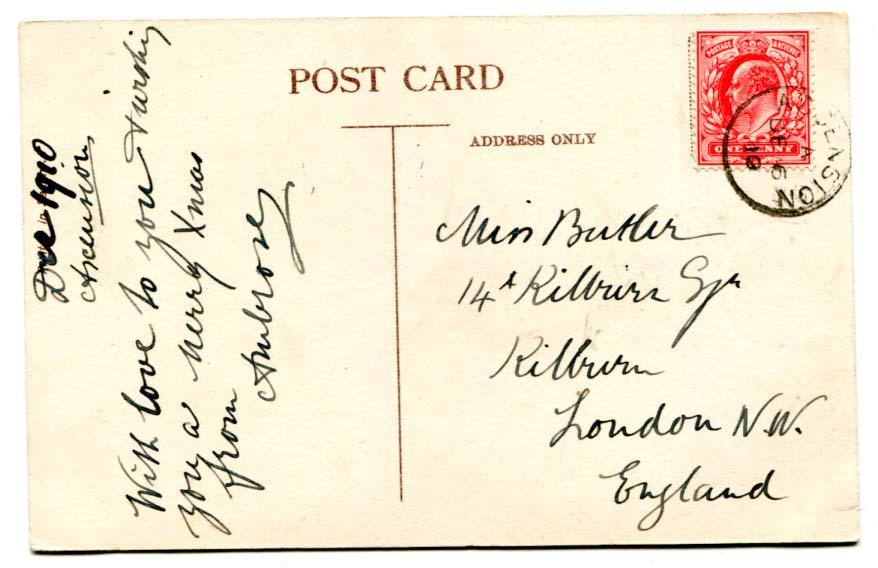 POST CARD
ADDRESS ONLY
POSTAGE & REVENUE
ONE PENNY
ASCENSION
A
DE 6
10
Dec 1910
Ascension
With love to you & wishing
you a merry Xmas
from
Ambrose
Miss Butler
14A Kilburn Sqr
Kilburn
London N.W.
England